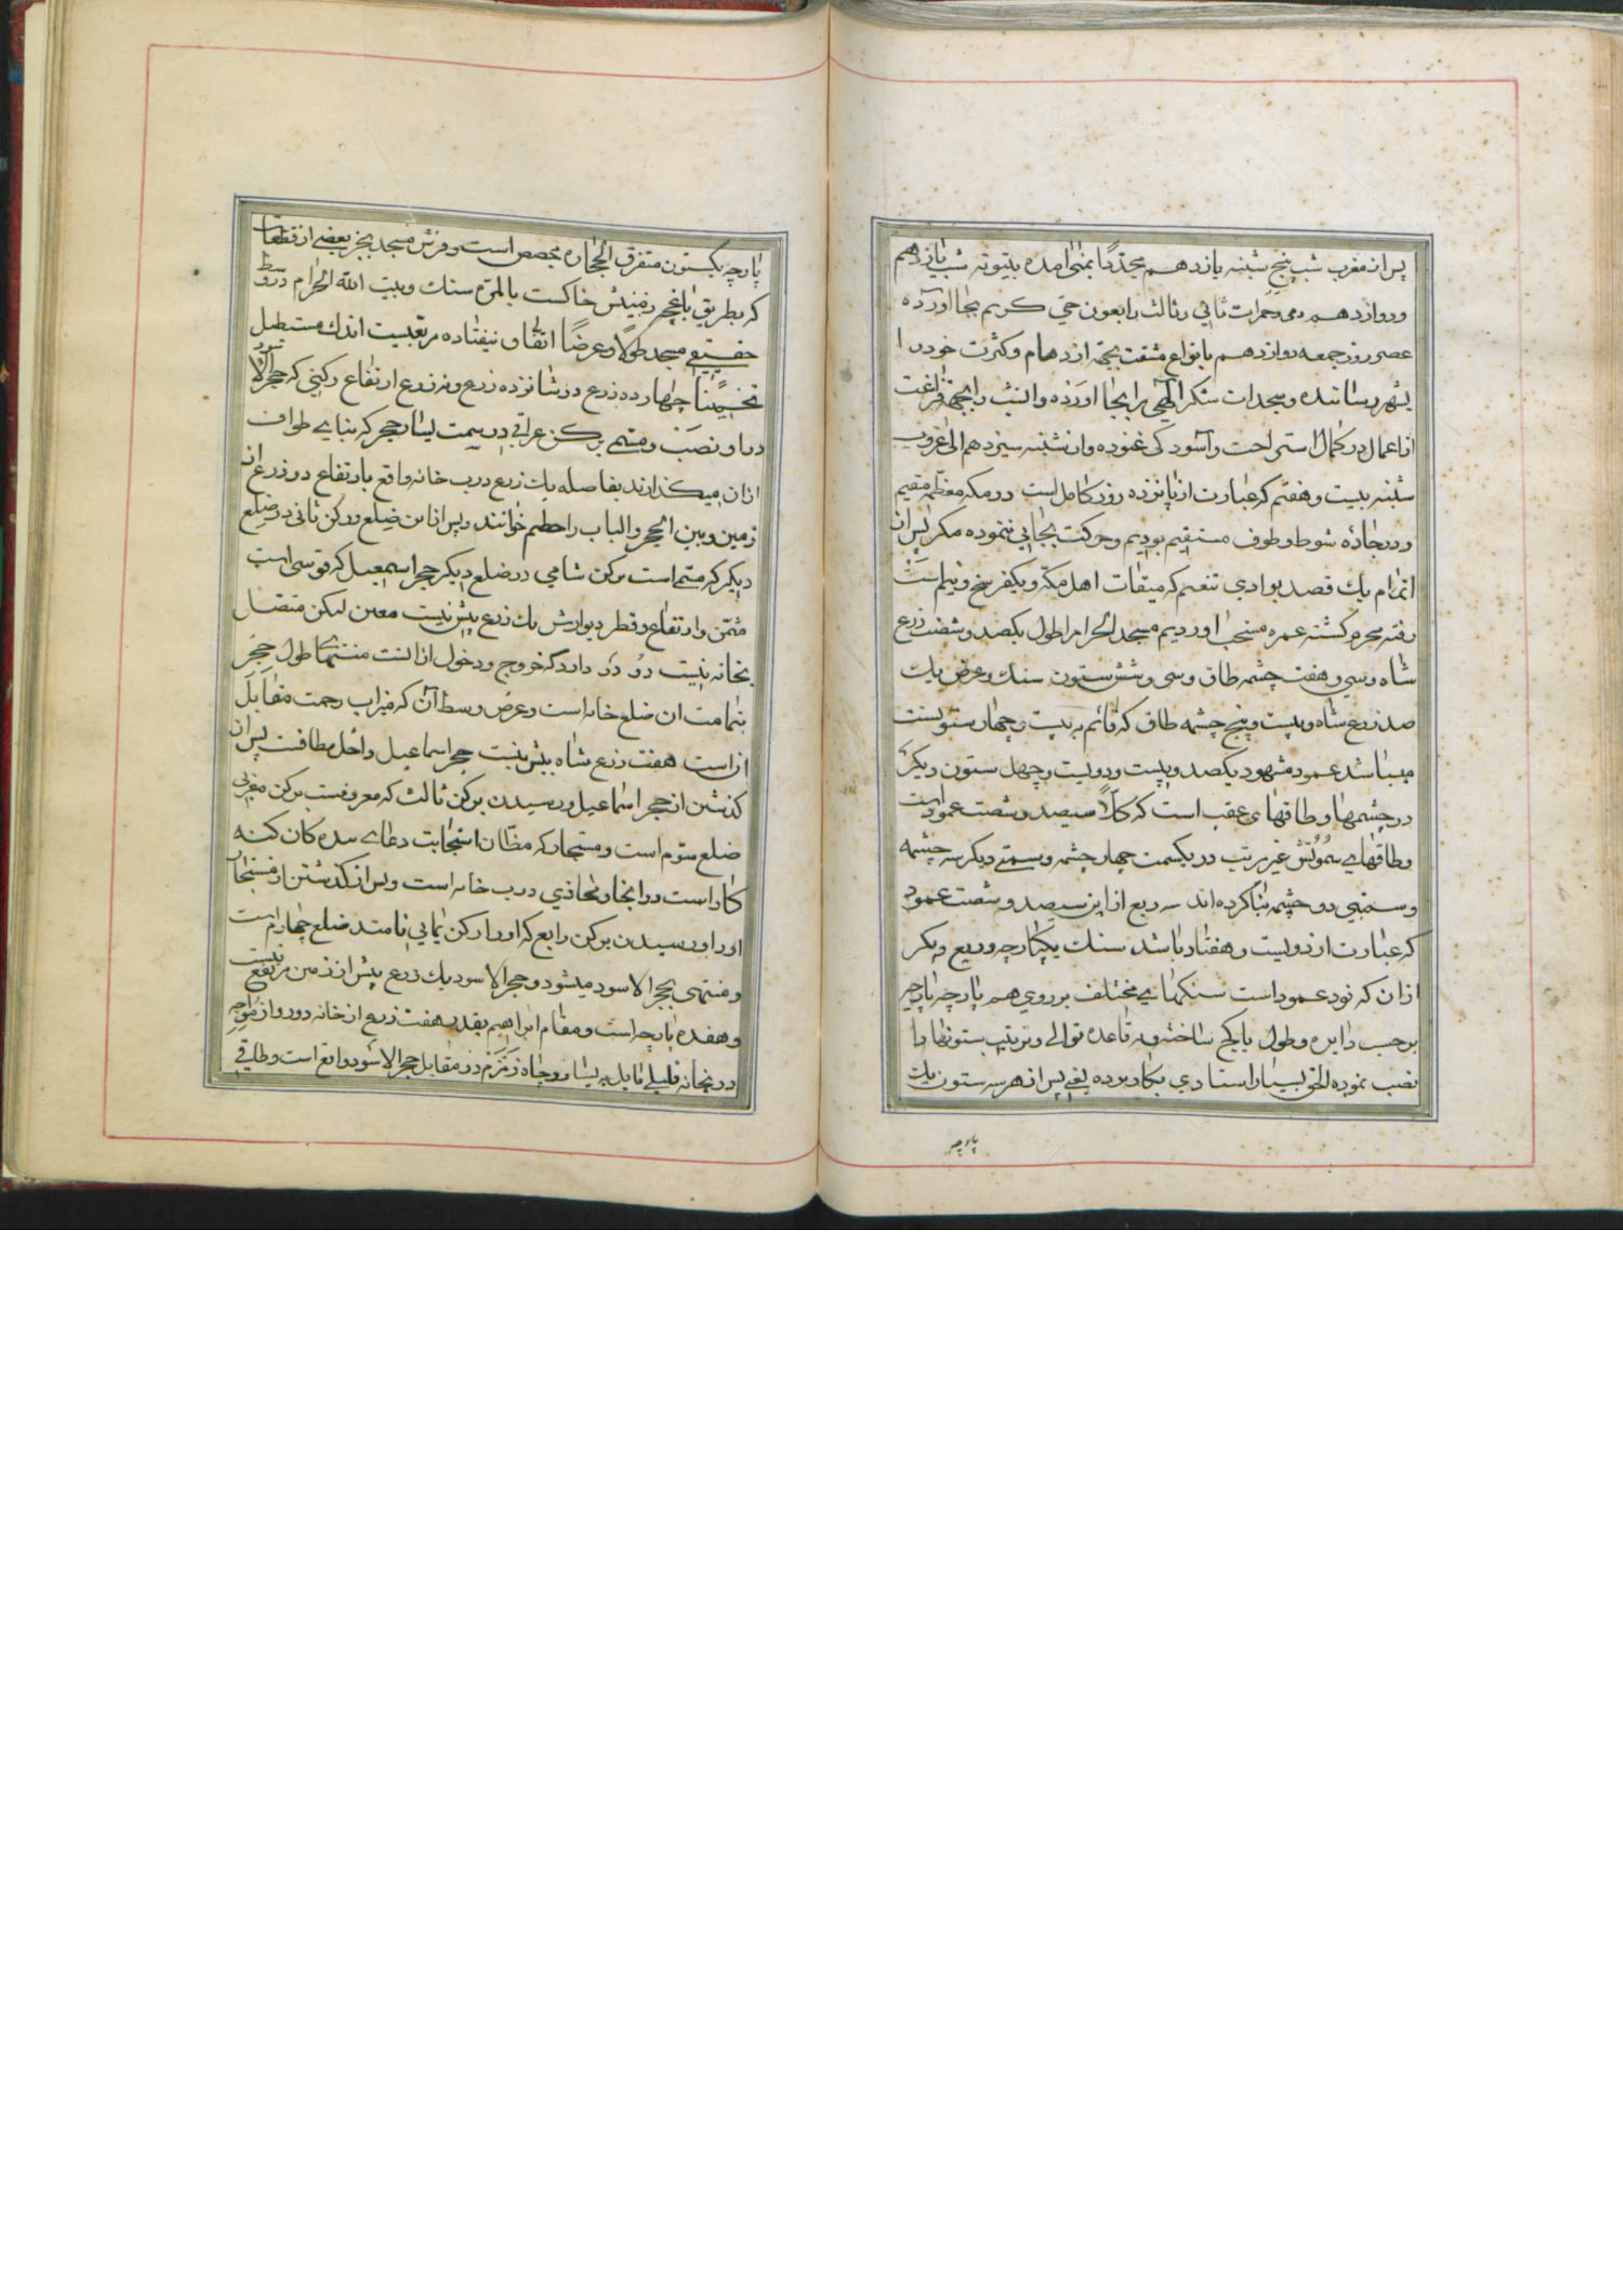 پس از مغرب شب پنج شنبه یازدهم مجدّدًا بمنی امده بیتوته شب یازدهم
و دوازدهم و رمی جمرات ثانی و ثالث را بعون حیّ کریم بجا اورده
عصر روز جمعه دوازدهم با نواع مشقت بجهة ازدهام وکثرت خود را
بشهر رسانده و سجدات شکر الهی را بجا اورده و انشب را بجهة فراغت
از اعمال در کمال استراحت و آسودکی غنوده و از شنبه سیزدهم الی غروب
شنبه بیست و هفتم که عبارت از پانزده روز کامل است در مکه معظمه مقیم
و در جادۀ شوط و طوف مستقیم بودیم و حرکت بجایی ننموده مکر پس از
اتمام یك قصد بوادی تنعیم که میقات اهل مکه و یکفرسخ و نیم است
رفته محرم کشته عمره مستحب اوردیم مسجد الحرام را طول یکصد و شصت زرع
شاه و سی و هفت چشمه طاق و سی و شش ستون سنك و عرض یك
صد زرع شاه و بیست و پنج چشمه طاق که قائم به بیست و چهار ستونست
میباشد عمود مشهود یکصد و بیست و دویست و چهل ستون دیکر
در چشمها و طاقهای عقب است که کلاً سیصد و شصت عمود است
و طاقهای ستونش غیر مرتب در یکسمت چهار چشمه و سمتی دیکر سه چشمه
و سمتی دو چشمه بنا کرده اند سه ربع از این سیصد و شصت عمود
که عبارت از دویست و هفتاد باشد سنك یکپارچه و ربع دیکر
ازان که نود عمود است سنکهای مختلف بر روی هم پارچه پارچه
بر حسب دایره و طول با کچ ساخته و قاعده توالی و ترتیب ستونها را
نصب نموده الحق بسیار استادی بکار بوده یعنی پس از هر سه ستون یك
پارچه
پارچه یکستون متفرق الحجاره مجصص است و فرش مسجد بجز بعضی از قطعات
که بطریق باغچه زمینش خاکست بالمرّه سنك و بیت الله الحرام در وسط
حقیقی مسجد طولاً و عرضاً اتفاق نیفتاده مربعیست اندك مستطیل
تخمیناً چهارده زرع در شانزده زرع و نه زرع ارتفاع رکنی که حجر الاسود
در او نصب و مسمی برکن عراقی در سمت یسار حجر که بنای طواف
ازان میکذارند بفاصله یك زرع درب خانه واقع بارتفاع دو زرع از
زمین و بین الحجر و الباب را حطیم خوانند و پس از این ضلع و رکن ثانی در ضلع
دیکر که مسمی است برکن شامی در ضلع دیکر حجر اسمعیل که قوسی است
مثمن و ارتفاع و قطر دیوارش یك زرع بیش نیست معین لیکن متصل
بخانه نیست دو در دارد که خروج و دخول از انست منتهای طول حجر
بتمامت ان ضلع خانه است و عرض وسط آن که میزاب رحمت مقابل
ازاست هفت زرع شاه بیش نیست حجر اسماعیل داخل مطافست پس از
کذشتن از حجر اسماعیل و رسیدن برکن ثالث که معروفست برکن مغربی
ضلع سوّم است و مستجار که مظّان استجابت دعای بنده کان کنه
کار است در انجا و محاذی درب خانه است و پس از کذشتن از مستجار
او را و رسیدن برکن رابع که او را رکن یمانی نامند ضلع چهارم است
و منتهی بحجر الاسود میشود و حجر الاسود یك زرع بیش از زمین مرتفع نیست
و هفده پارچه است و مقام ابراهیم بقدر هفت زرع از خانه دور و از مواجه
درب خانه قلیلی مایل به یسار و چاه زمزم در مقابل حجر الاسود واقع است و طاقی